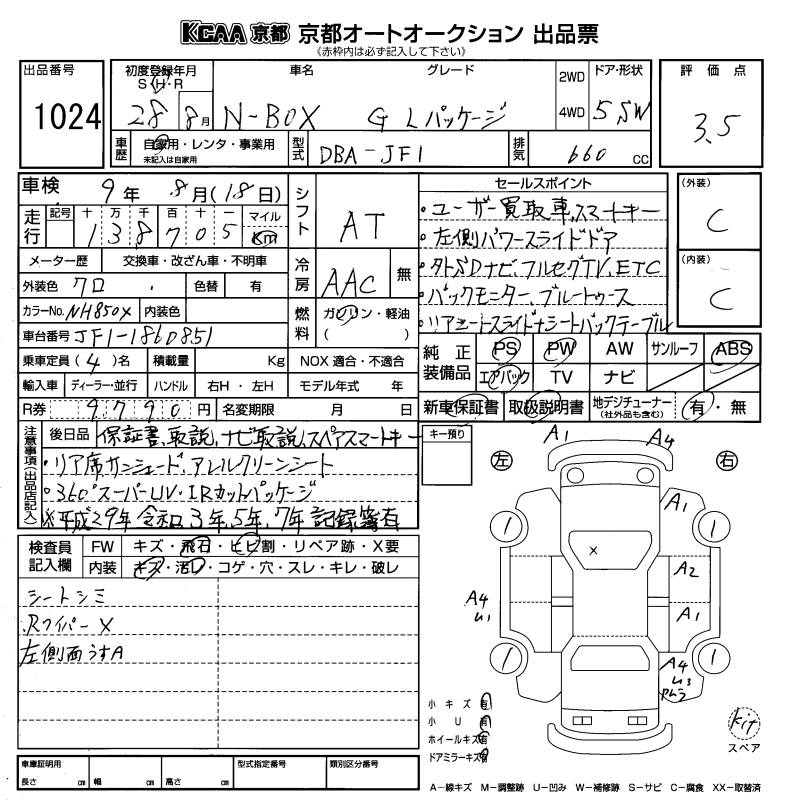 KCAA 京都 京都オートオークション 出品票
《赤枠内は必ず記入して下さい》
出品番号
1024
初度登録年月
S・H・R
28 8月
車名
N-BOX
グレード
G Lパッケージ
2WD
4WD
ドア・形状
5 SW
評価点
3.5
車歴
自家用・レンタ・事業用
未記入は自家用
型式
DBA-JF1
排気
660 cc
車検
9年 8月(18日)
走行
記号 十 万 千 百 十 一 マイル
1 3 8 7 0 5 km
メーター歴 交換車・改ざん車・不明車
外装色 クロ 色替 有
カラーNo. NH850X 内装色
車台番号 JF1-1860851
乗車定員(4)名 積載量 Kg NOX 適合・不適合
輸入車 ディーラー・並行 ハンドル 右H・左H モデル年式 年
R券 9790円 名変期限 月 日
シフト
AT
冷房
AAC 無
燃料
ガソリン・軽油
( )
セールスポイント
・ユーザー買取車、スマートキー
・左側パワースライドドア
・外SDナビ、フルセグTV、ETC
・バックモニター、ブルートゥース
・リアシートスライド+シートバックテーブル
(外装)
C
(内装)
C
純正装備品
PS PW AW サンルーフ ABS
エアバック TV ナビ
新車保証書 取扱説明書 地デジチューナー(社外品も含む) 有・無
注意事項(出品店記入)
後日品 保証書、取説、ナビ取説、スペアスマートキー
・リア席サンシェード、アレルクリーンシート
・360°スーパーUV・IRカットパッケージ
※平成29年 令和3年、5年、7年 記録簿有
キー預り
検査員記入欄
FW キズ・飛石・ヒビ割・リペア跡・X要
内装 キズ・汚レ・コゲ・穴・スレ・キレ・破レ
シートシミ
Rワイパー X
左側面うすA
左
右
A1
A4
A1
1
1
x
A2
A4
A1
1
1
A4
小キズ 有
小U 有
ホイールキズ 有
ドアミラーキズ 有
kit
スペア
車庫証明用
長さ cm 幅 cm 高さ cm
型式指定番号
類別区分番号
A-線キズ M-調整跡 U-凹み W-補修跡 S-サビ C-腐食 XX-取替済